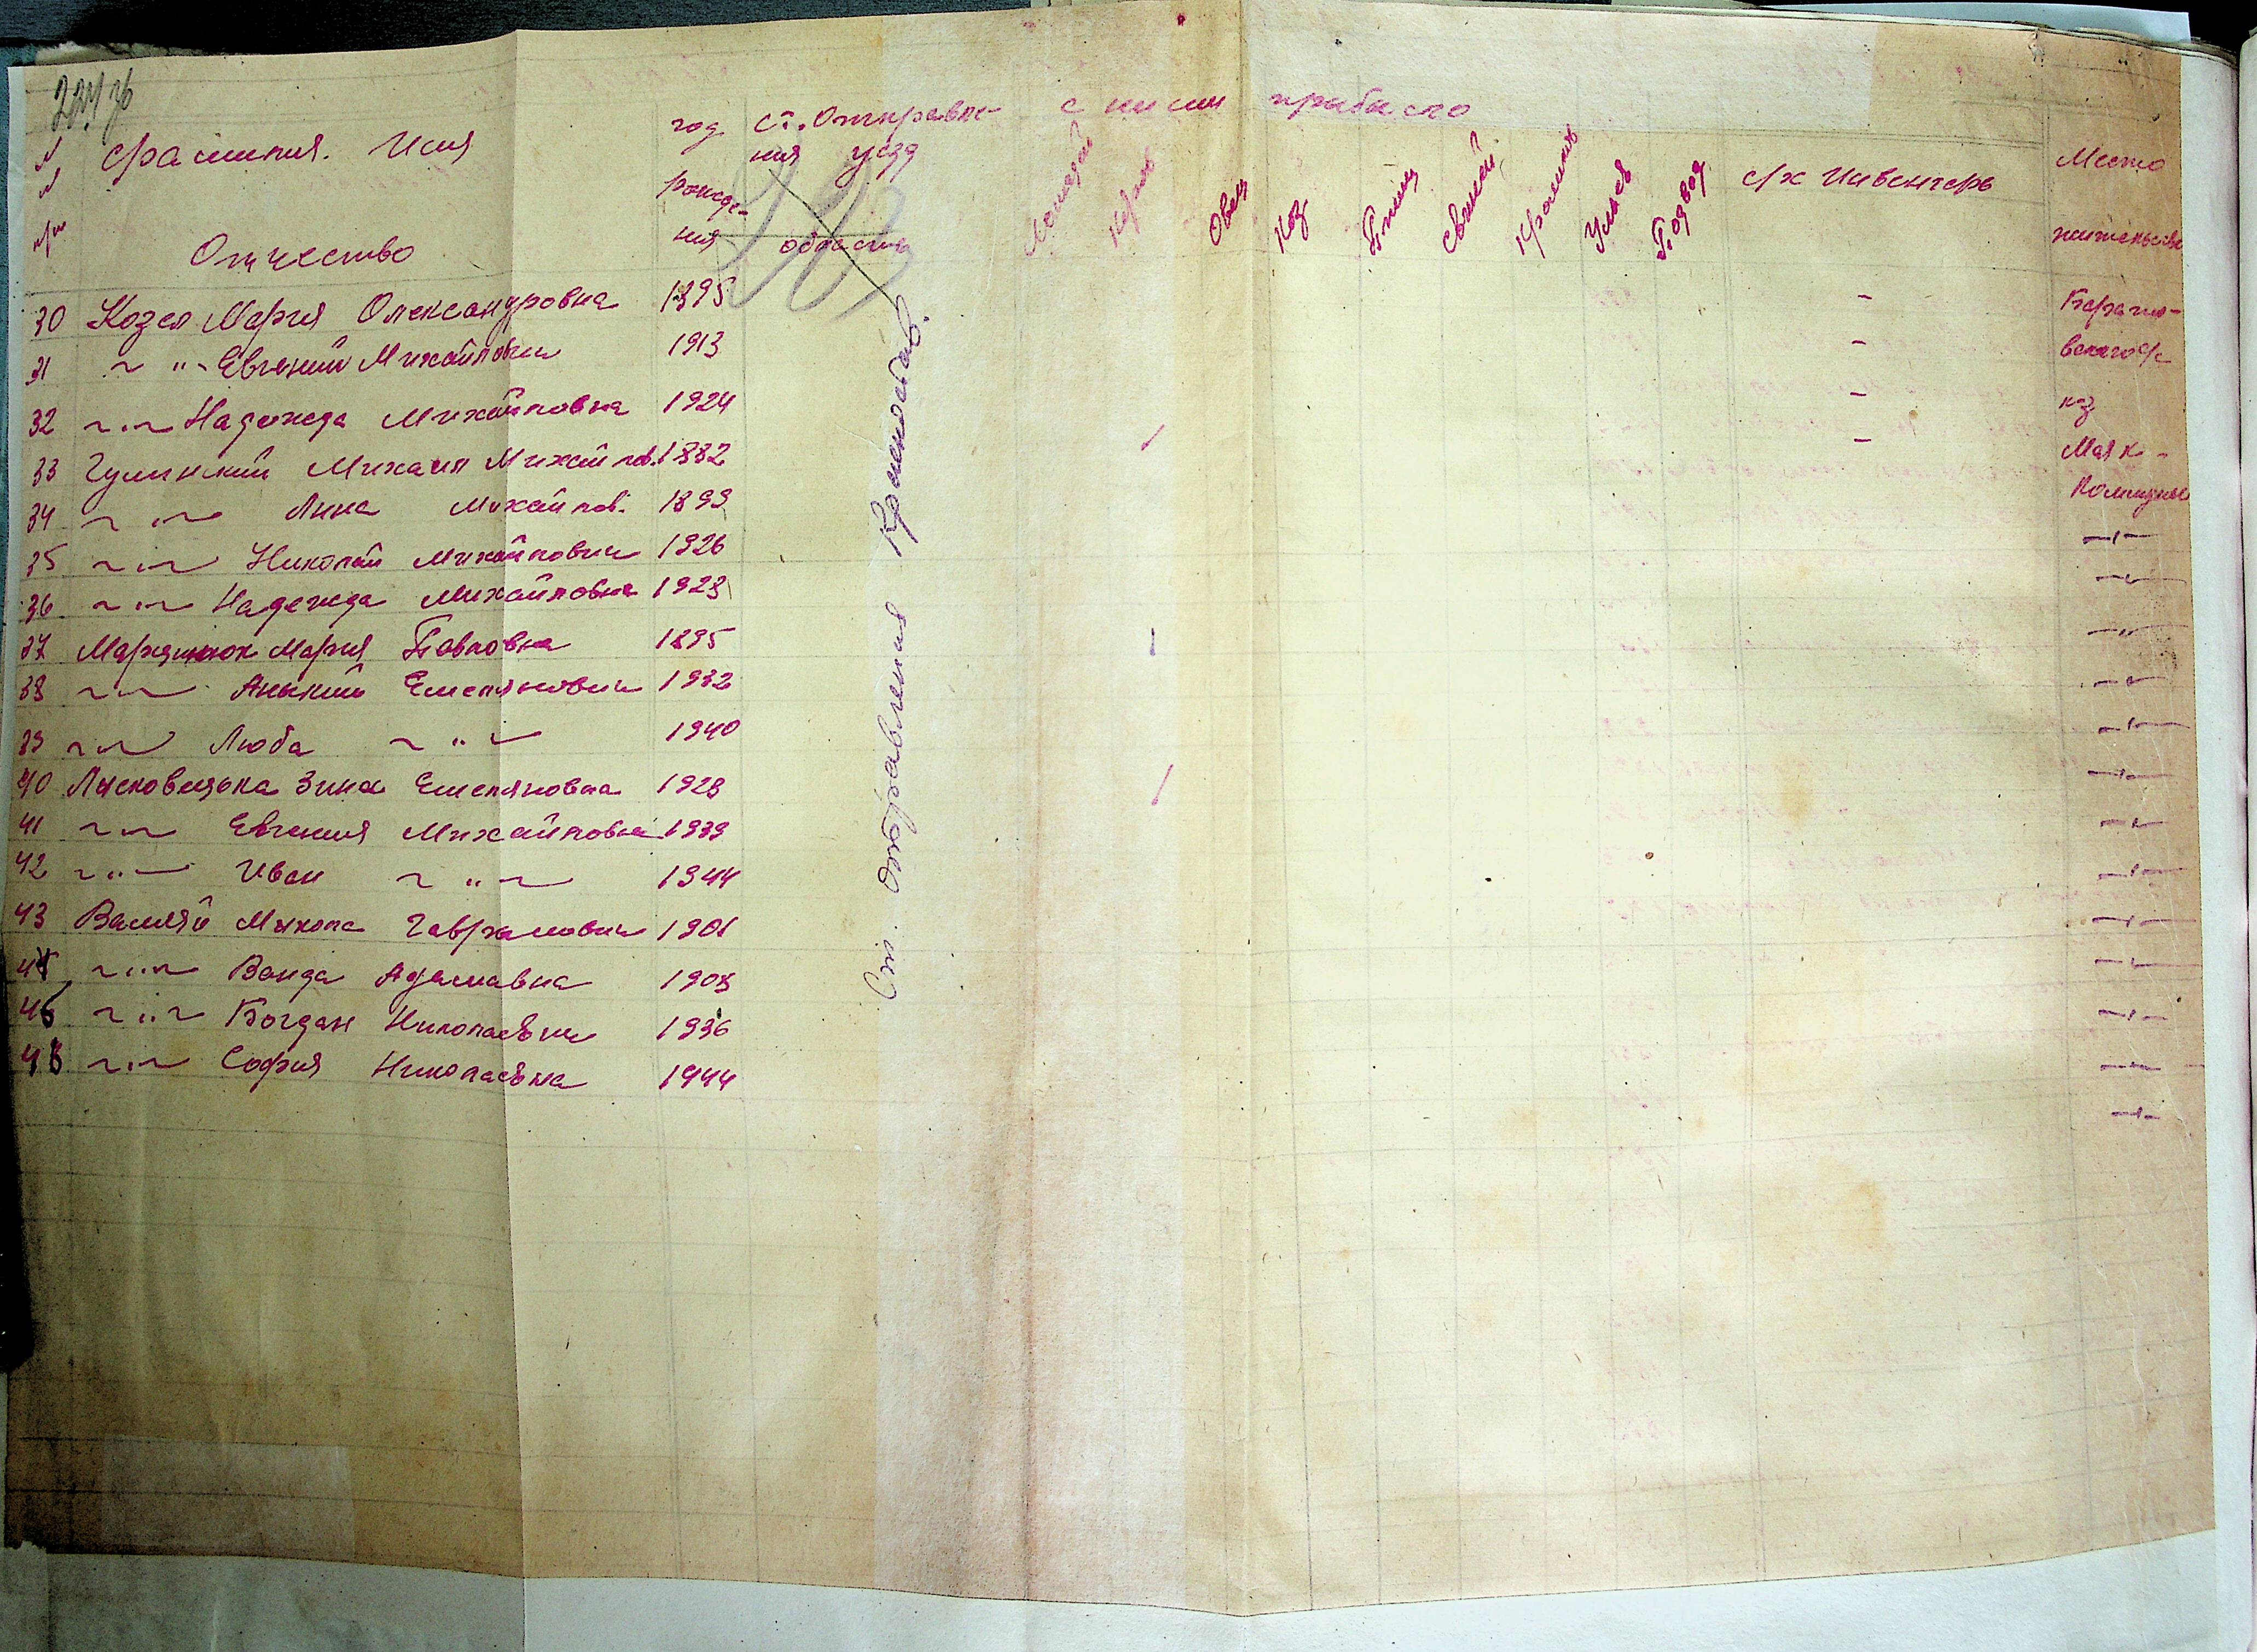 N Фамилия. Имя
N
п/п
Отчество
год
рожде-
ния
ст. Отправле-
ния уезд
область
с ними прибыло
Лошадей
Коров
Овец
Коз
Птиц
Свиней
Кроликов
Ульев
Подвод
с/х Инвентарь
Место
жительства
30 Козел Мария Олександровна 1895 -
31 ~ " ~ Евгений Михайлович 1913 -
32 ~ " ~ Надежда Михайловна 1924 -
33 Михаил Михайлов. 1882 / -
34 ~ " ~ Анна Михайлов. 1899
35 ~ " ~ Николай Михайлович 1926
36 ~ " ~ Надежда Михайловна 1928
37 Марцинюк Мария Павловна 1895 1
38 ~ " ~ Емелянович 1932
39 ~ " ~ Люба ~ " ~ 1940
40 Зина Емеляновна 1928 /
41 ~ " ~ Евгения Михайловна 1939
42 ~ " ~ Иван ~ " ~ 1944
43 Микола Гаврилович 1901
44 ~ " ~ Ванда Адамавна 1908
45 ~ " ~ Богдан Николаевич 1936
46 ~ " ~ София Николаевна 1944
Ст. отправления
к-з
Маяк-
Коммуны